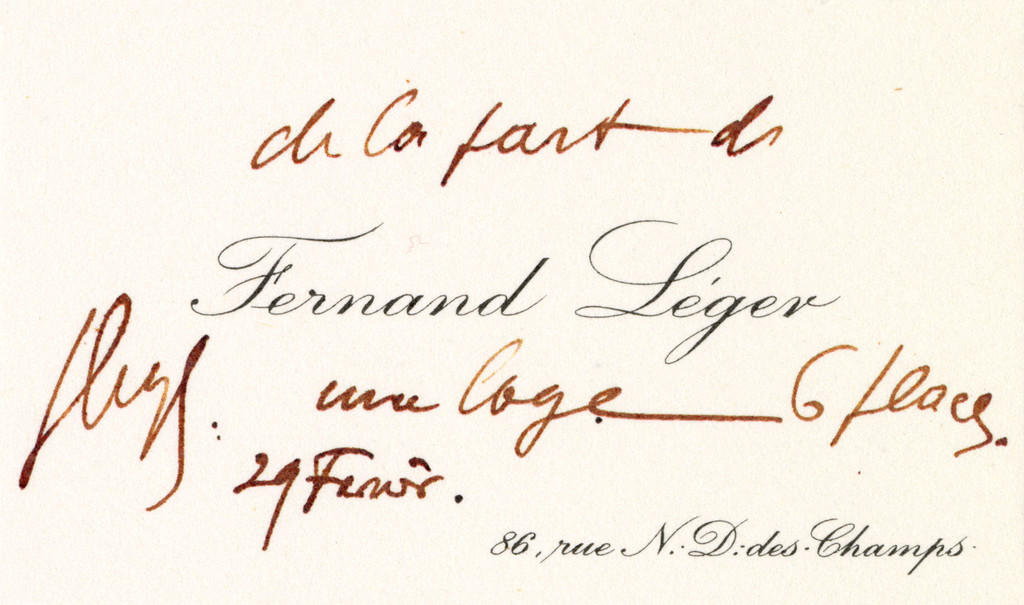 de la part de
Fernand Léger
une loge 6 places.
29 Février.
86, rue N.-D.-des-Champs